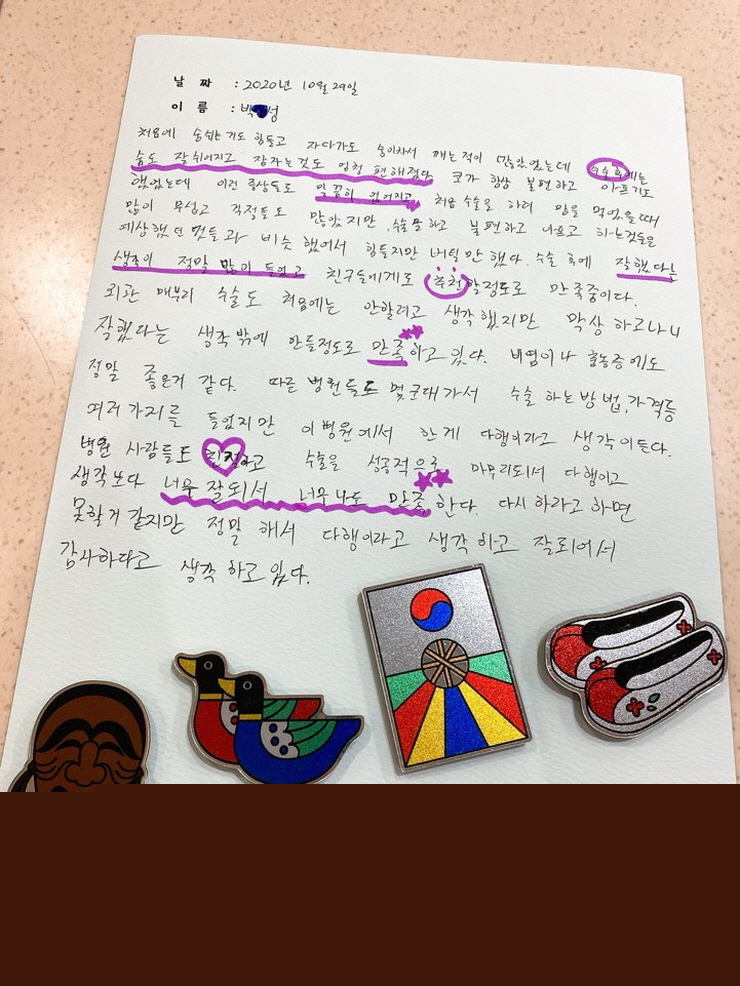 날 짜 : 2020년 10월 29일
이 름 : 박 성
처음에 숨쉬는거도 힘들고 자다가도 숨이차서 깨는적이 많았었는데 수술후에는
숨도 잘쉬어지고 잠자는것도 엄청 편해졌다 코가 항상 불편하고 아프기도
했었는데 이런 증상들도 말끔히 없어지고, 처음 수술을 하려 맘을 먹었을때
많이 무섭고 걱정들도 많았지만, 수술을 하고 불편하고 아프고 하는것들은
예상했던 것들과 비슷했어서 힘들지만 버틸만 했다. 수술 후에 잘했다는
생각이 정말 많이 들었고 친구들에게도 추천할정도로 만족중이다.
외관 매부리 수술도 처음에는 안할려고 생각했지만 막상 하고나니
잘했다는 생각밖에 안들정도로 만족하고 있다. 비염이나 축농증에도
정말 좋은거 같다. 따른 병원들도 몇군대가서 수술 하는방법, 가격등
여러가지를 들었지만 이병원에서 한게 다행이라고 생각이든다.
병원 사람들도 친절하고 수술을 성공적으로 마무리되서 다행이고
생각보다 너무 잘되서 너무나도 만족한다. 다시 하라고 하면
못할거 같지만 정말 해서 다행이라고 생각하고 잘되어서
감사하다고 생각 하고 있다.